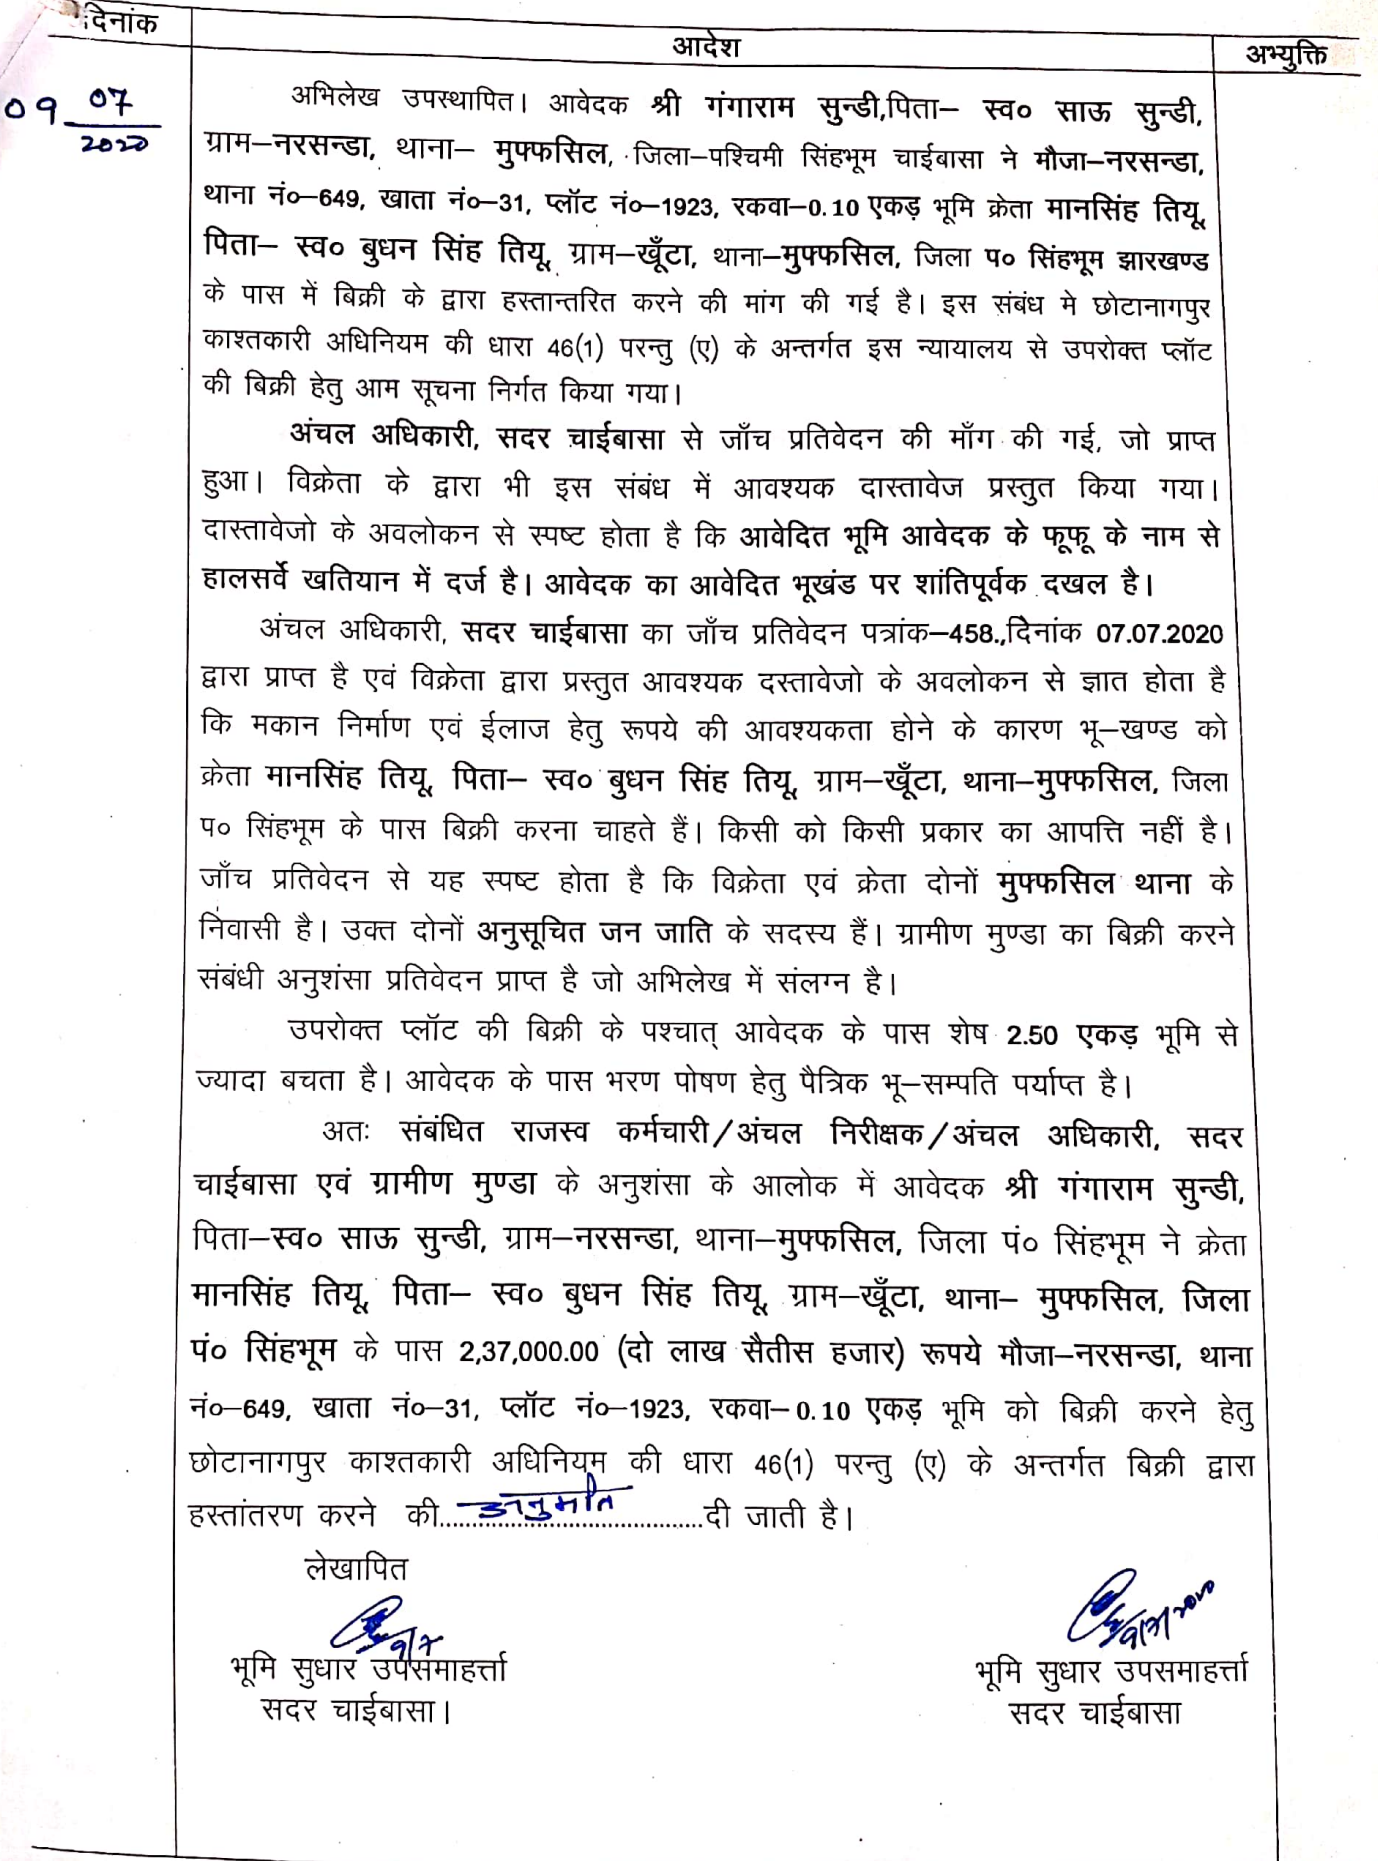 दिनांक
आदेश
अभ्युक्ति
09 07
2020
अभिलेख उपस्थापित। आवेदक श्री गंगाराम सुन्डी,पिता– स्व० साऊ सुन्डी,
ग्राम–नरसन्डा, थाना– मुफ्फसिल, जिला–पश्चिमी सिंहभूम चाईबासा ने मौजा–नरसन्डा,
थाना नं०–649, खाता नं०–31, प्लॉट नं०–1923, रकवा–0.10 एकड़ भूमि क्रेता मानसिंह तियू,
पिता– स्व० बुधन सिंह तियू, ग्राम–खूँटा, थाना–मुफ्फसिल, जिला प० सिंहभूम झारखण्ड
के पास में बिक्री के द्वारा हस्तान्तरित करने की मांग की गई है। इस संबंध मे छोटानागपुर
काश्तकारी अधिनियम की धारा 46(1) परन्तु (ए) के अन्तर्गत इस न्यायालय से उपरोक्त प्लॉट
की बिक्री हेतु आम सूचना निर्गत किया गया।
अंचल अधिकारी, सदर चाईबासा से जाँच प्रतिवेदन की माँग की गई, जो प्राप्त
हुआ। विक्रेता के द्वारा भी इस संबंध में आवश्यक दास्तावेज प्रस्तुत किया गया।
दास्तावेजो के अवलोकन से स्पष्ट होता है कि आवेदित भूमि आवेदक के फूफू के नाम से
हालसर्वे खतियान में दर्ज है। आवेदक का आवेदित भूखंड पर शांतिपूर्वक दखल है।
अंचल अधिकारी, सदर चाईबासा का जाँच प्रतिवेदन पत्रांक–458.,दिनांक 07.07.2020
द्वारा प्राप्त है एवं विक्रेता द्वारा प्रस्तुत आवश्यक दस्तावेजो के अवलोकन से ज्ञात होता है
कि मकान निर्माण एवं ईलाज हेतु रूपये की आवश्यकता होने के कारण भू–खण्ड को
क्रेता मानसिंह तियू, पिता– स्व० बुधन सिंह तियू, ग्राम–खूँटा, थाना–मुफ्फसिल, जिला
प० सिंहभूम के पास बिक्री करना चाहते हैं। किसी को किसी प्रकार का आपत्ति नहीं है।
जाँच प्रतिवेदन से यह स्पष्ट होता है कि विक्रेता एवं क्रेता दोनों मुफ्फसिल थाना के
निवासी है। उक्त दोनों अनुसूचित जन जाति के सदस्य हैं। ग्रामीण मुण्डा का बिक्री करने
संबंधी अनुशंसा प्रतिवेदन प्राप्त है जो अभिलेख में संलग्न है।
उपरोक्त प्लॉट की बिक्री के पश्चात् आवेदक के पास शेष 2.50 एकड़ भूमि से
ज्यादा बचता है। आवेदक के पास भरण पोषण हेतु पैत्रिक भू–सम्पति पर्याप्त है।
अतः संबंधित राजस्व कर्मचारी/अंचल निरीक्षक/अंचल अधिकारी, सदर
चाईबासा एवं ग्रामीण मुण्डा के अनुशंसा के आलोक में आवेदक श्री गंगाराम सुन्डी,
पिता–स्व० साऊ सुन्डी, ग्राम–नरसन्डा, थाना–मुफ्फसिल, जिला पं० सिंहभूम ने क्रेता
मानसिंह तियू, पिता– स्व० बुधन सिंह तियू, ग्राम–खूँटा, थाना– मुफ्फसिल, जिला
पं० सिंहभूम के पास 2,37,000.00 (दो लाख सैतीस हजार) रूपये मौजा–नरसन्डा, थाना
नं०–649, खाता नं०–31, प्लॉट नं०–1923, रकवा–0.10 एकड़ भूमि को बिक्री करने हेतु
छोटानागपुर काश्तकारी अधिनियम की धारा 46(1) परन्तु (ए) के अन्तर्गत बिक्री द्वारा
हस्तांतरण करने की.....अनुमति.....दी जाती है।
लेखापित
9/7
9/7/2020
भूमि सुधार उपसमाहर्त्ता
भूमि सुधार उपसमाहर्त्ता
सदर चाईबासा।
सदर चाईबासा